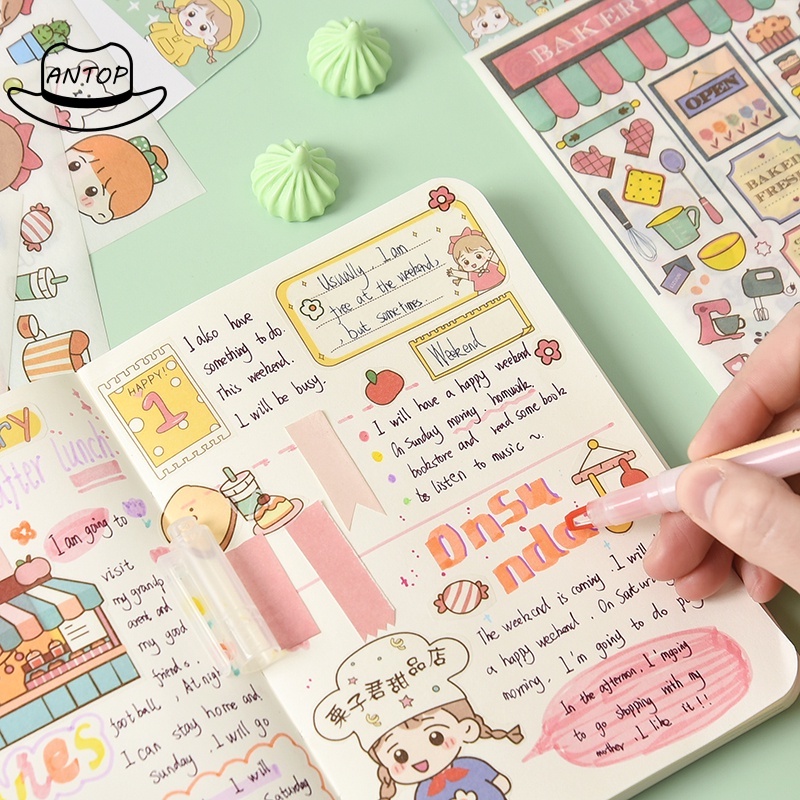 ANTOP
BAKERY
OPEN
BAKED
FRESH
Usually I am
free at the weekend,
, but sometimes.
Weekend
I also have
something to do.
This weekend.
I will be busy.
HAPPY!
1
I will have a happy weekend
On Sunday moving. homework
bookstore and read some book
to listen to music ~.
Onsu
nda
The weekend is coming. I will
a happy weekend. On Saturday
morning, I'm going to do
In the afternoon. I'm going
to go shopping with my
mother. I like it!!
栗子君甜品店
ry
after Lunch
I am going to
visit
my grandp
arent and
my good
friends.
, At nigh
football,
I can stay home and
Sunday. I will go
ies
I will
Saturday